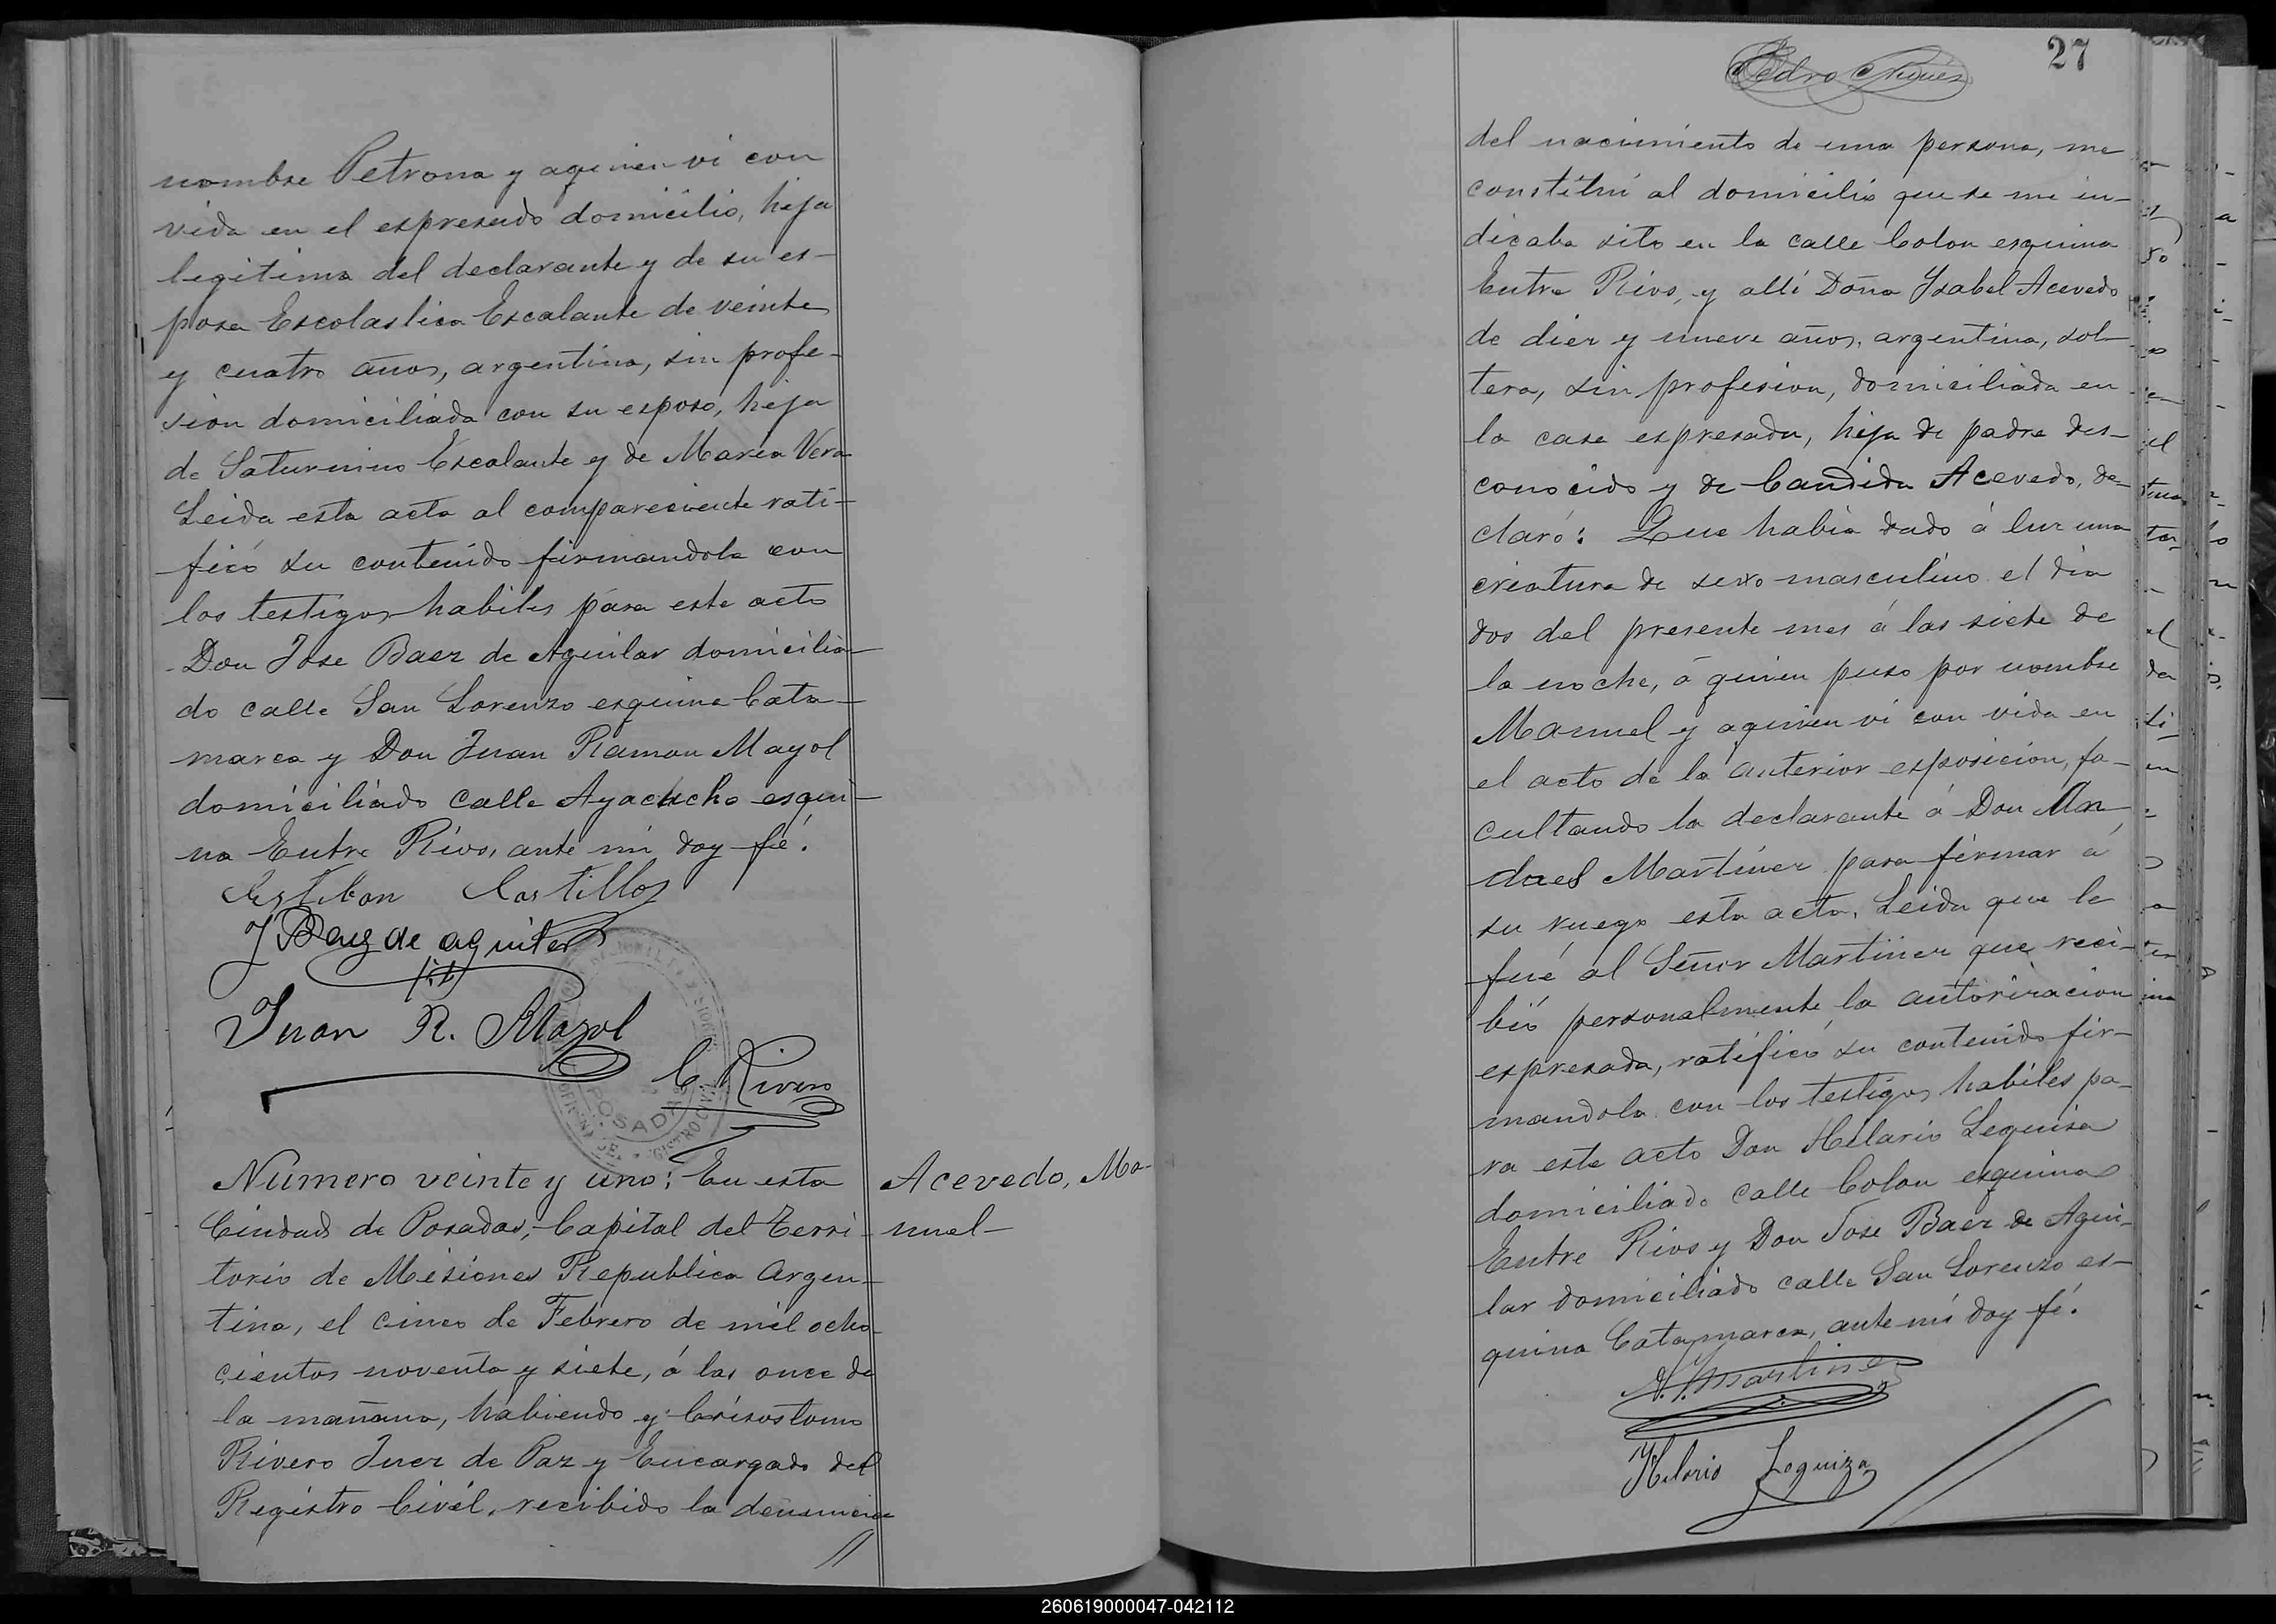 nombre Petrona y aquien vi con
vida en el espresado domicilio, hija
legitima del declarante y de su es-
posa Escolastica Escalante de veinte
y cuatro años, argentina, sin profe-
sion domiciliada con su esposo, hija
de Saturnino Escalante y de Maria Vera
Leida esta acta al compareciente rati-
ficó su contenido firmandola con
los testigos habiles para este acto
Don Jose Baez de Aguilar domicilia-
do calle San Lorenzo esquina Cata-
marca y Don Juan Ramon Mayol
domiciliado calle Ayacucho esqui-
na Entre Rios, ante mi doy fé.
Esteban Castillo
J Baez de aguilar
Juan R. Mayol
C. Rivero
POSADAS
Número veinte y uno: En esta
Ciudad de Posadas, Capital del Terri-
torio de Misiones Republica Argen-
tina, el cinco de Febrero de mil ocho-
cientos noventa y siete, á las once de
la mañana, habiendo yo Crisostomo
Rivero Juez de Paz y Encargado del
Registro Civil, recibido la denuncia
Acevedo, Ma-
nuel
27
Pedro Nuñez
del nacimiento de una persona, me
constituí al domicilio que se me in-
dicaba sito en la calle Colon esquina
Entre Rios, y allí Doña Ysabel Acevedo
de diez y nueve años, argentina, sol-
tera, sin profesion, domiciliada en
la casa espresada, hija de padre des-
conocido y de Candida Acevedo, de-
claró: Que habia dado á luz una
criatura de sexo masculino el dia
dos del presente mes á las siete de
la noche, á quien puso por nombre
Manuel y aquien vi con vida en
el acto de la anterior esposicion, fa-
cultando la declarante á Don
Martinez para firmar á
su ruego esta acta. Leida que le
fué al Señor Martinez que reci-
bió personalmente la autorizacion
espresada, ratificó su contenido fir-
mandola con los testigos habiles pa-
ra este acto Don Hilario Leguiza
domiciliado calle Colon esquina
Entre Rios y Don Jose Baez de Agui-
lar domiciliado calle San Lorenzo es-
quina Catamarca, ante mi doy fé.
Martinez
Hilario Leguiza
260619000047-042112